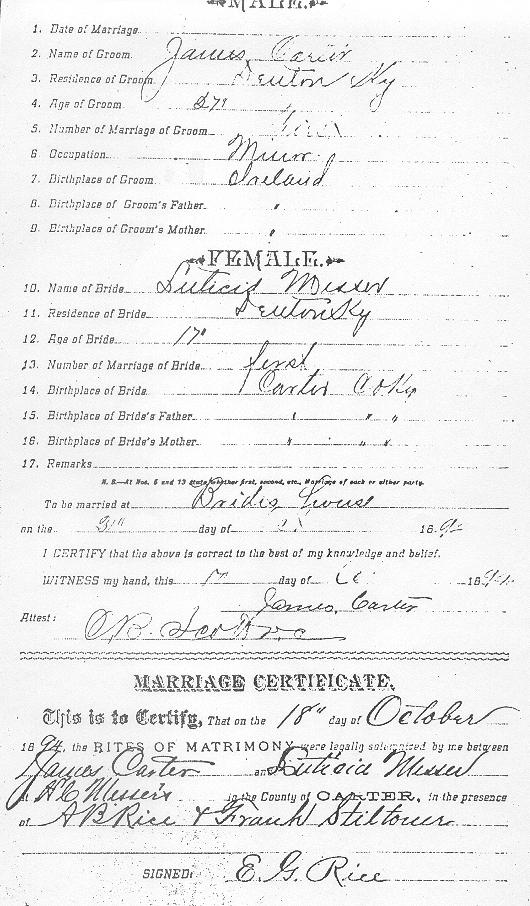 MALE.
1. Date of Marriage
2. Name of Groom James Carter
3. Residence of Groom Denton Ky
4. Age of Groom 27
5. Number of Marriage of Groom
6 Occupation Miner
7. Birthplace of Groom Ireland
8. Birthplace of Groom's Father "
9. Birthplace of Groom's Mother "
FEMALE.
10. Name of Bride Luticid Messer
11. Residence of Bride Denton Ky
12. Age of Bride 17
13. Number of Marriage of Bride first
14. Birthplace of Bride Carter Co Ky
15. Birthplace of Bride's Father " " "
16. Birthplace of Bride's Mother " " "
17. Remarks
N. B.—At Nos. 5 and 13 state whether first, second, etc., Marriage of each or either party.
To be married at Brides house
on the day of 189
I CERTIFY that the above is correct to the best of my knowledge and belief.
WITNESS my hand, this 17 day of 189
James Carter
Attest:
O.B. Scott
MARRIAGE CERTIFICATE.
This is to Certify, That on the 18" day of October
1894, the RITES OF MATRIMONY were legally solemnized by me between
James Carter and Luticid Messer
at A C Messer's in the County of CARTER, in the presence
of A B Rice & Frank Stiltoner
SIGNED: E. G. Rice